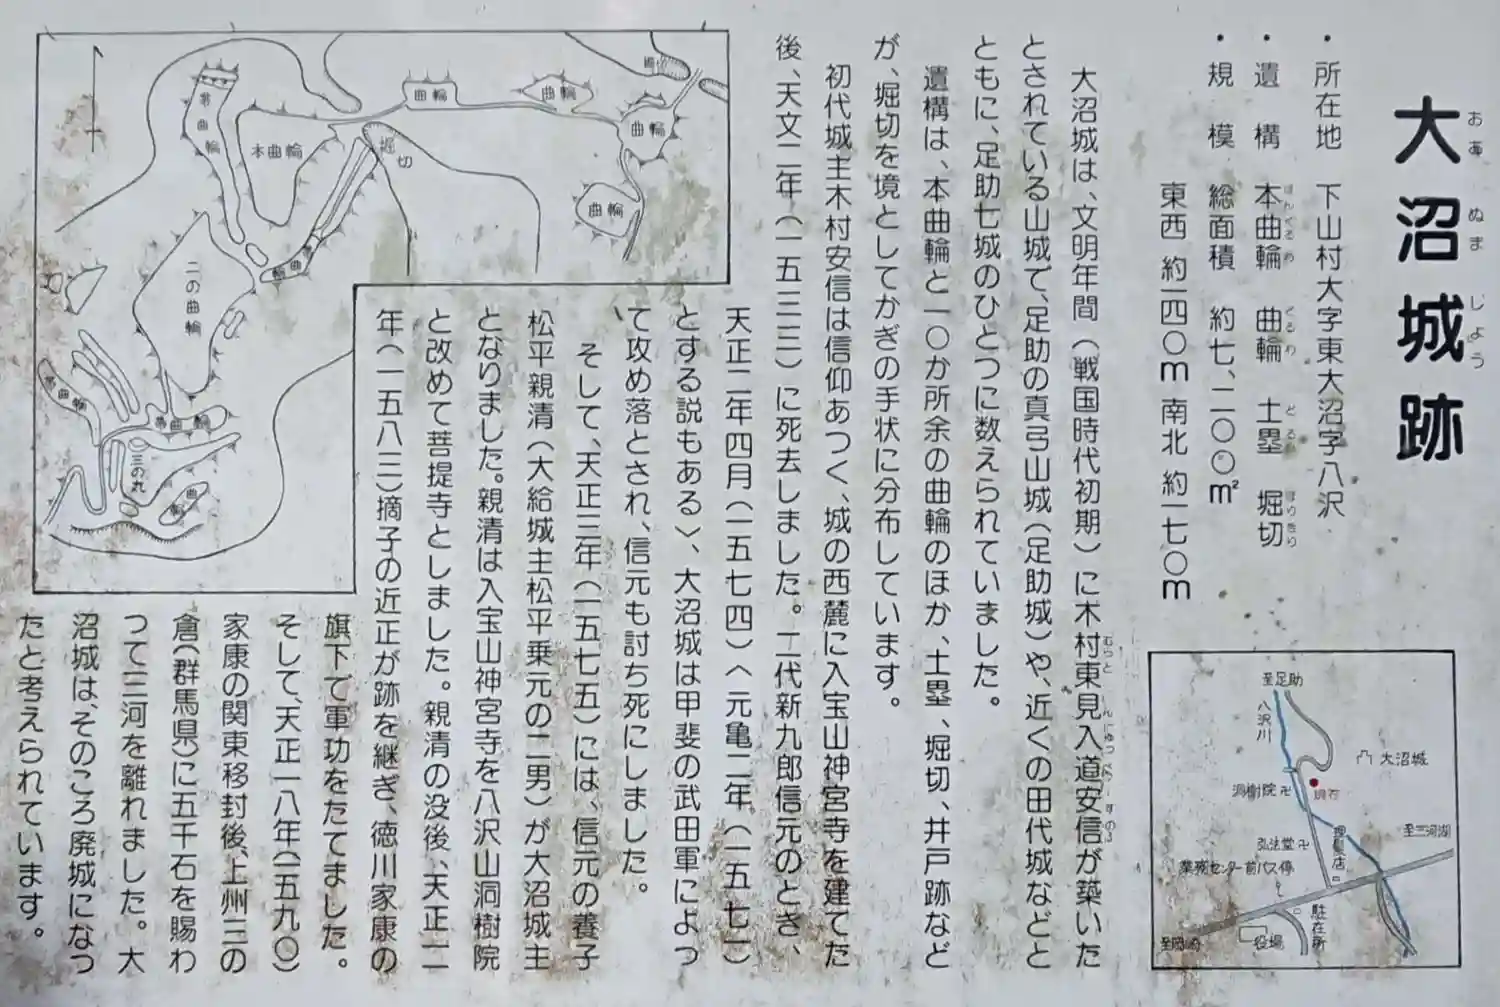 大沼城跡
おお ぬま じょう
・所在地 下山村大字東大沼字八沢
・遺構 本曲輪 曲輪 土塁 堀切
・規模 総面積 約七、二〇〇㎡
東西 約一四〇m 南北 約一七〇m
大沼城は、文明年間（戦国時代初期）に木村東見入道安信が築いた
とされている山城で、足助の真弓山城（足助城）や、近くの田代城などと
ともに、足助七城のひとつに数えられていました。
遺構は、本曲輪と一〇か所余の曲輪のほか、土塁、堀切、井戸跡など
が、堀切を境としてかぎの手状に分布しています。
初代城主木村安信は信仰あつく、城の西麓に入宝山神宮寺を建てた
後、天文二年（一五三三）に死去しました。二代新九郎信元のとき、
天正二年四月（一五七四）〈元亀二年（一五七一）
とする説もある〉、大沼城は甲斐の武田軍によっ
て攻め落とされ、信元も討ち死にしました。
そして、天正三年（一五七五）には、信元の養子
松平親清（大給城主松平乗元の二男）が大沼城主
となりました。親清は入宝山神宮寺を八沢山洞樹院
と改めて菩提寺としました。親清の没後、天正一一
年（一五八三）摘子の近正が跡を継ぎ、徳川家康の
旗下で軍功をたてました。
そして、天正一八年（一五九〇）
家康の関東移封後、上州三の
倉（群馬県）に五千石を賜わ
って三河を離れました。大
沼城は、そのころ廃城になっ
たと考えられています。
帯曲輪
本曲輪
堀切
曲輪
曲輪
曲輪
曲輪
二の曲輪
帯曲輪
帯曲輪
帯曲輪
三の丸
曲輪
至足助
八沢川
大沼城
洞樹院
現在
至三河湖
弘法堂
理髪店
業務センター前バス停
駐在所
役場
至岡崎